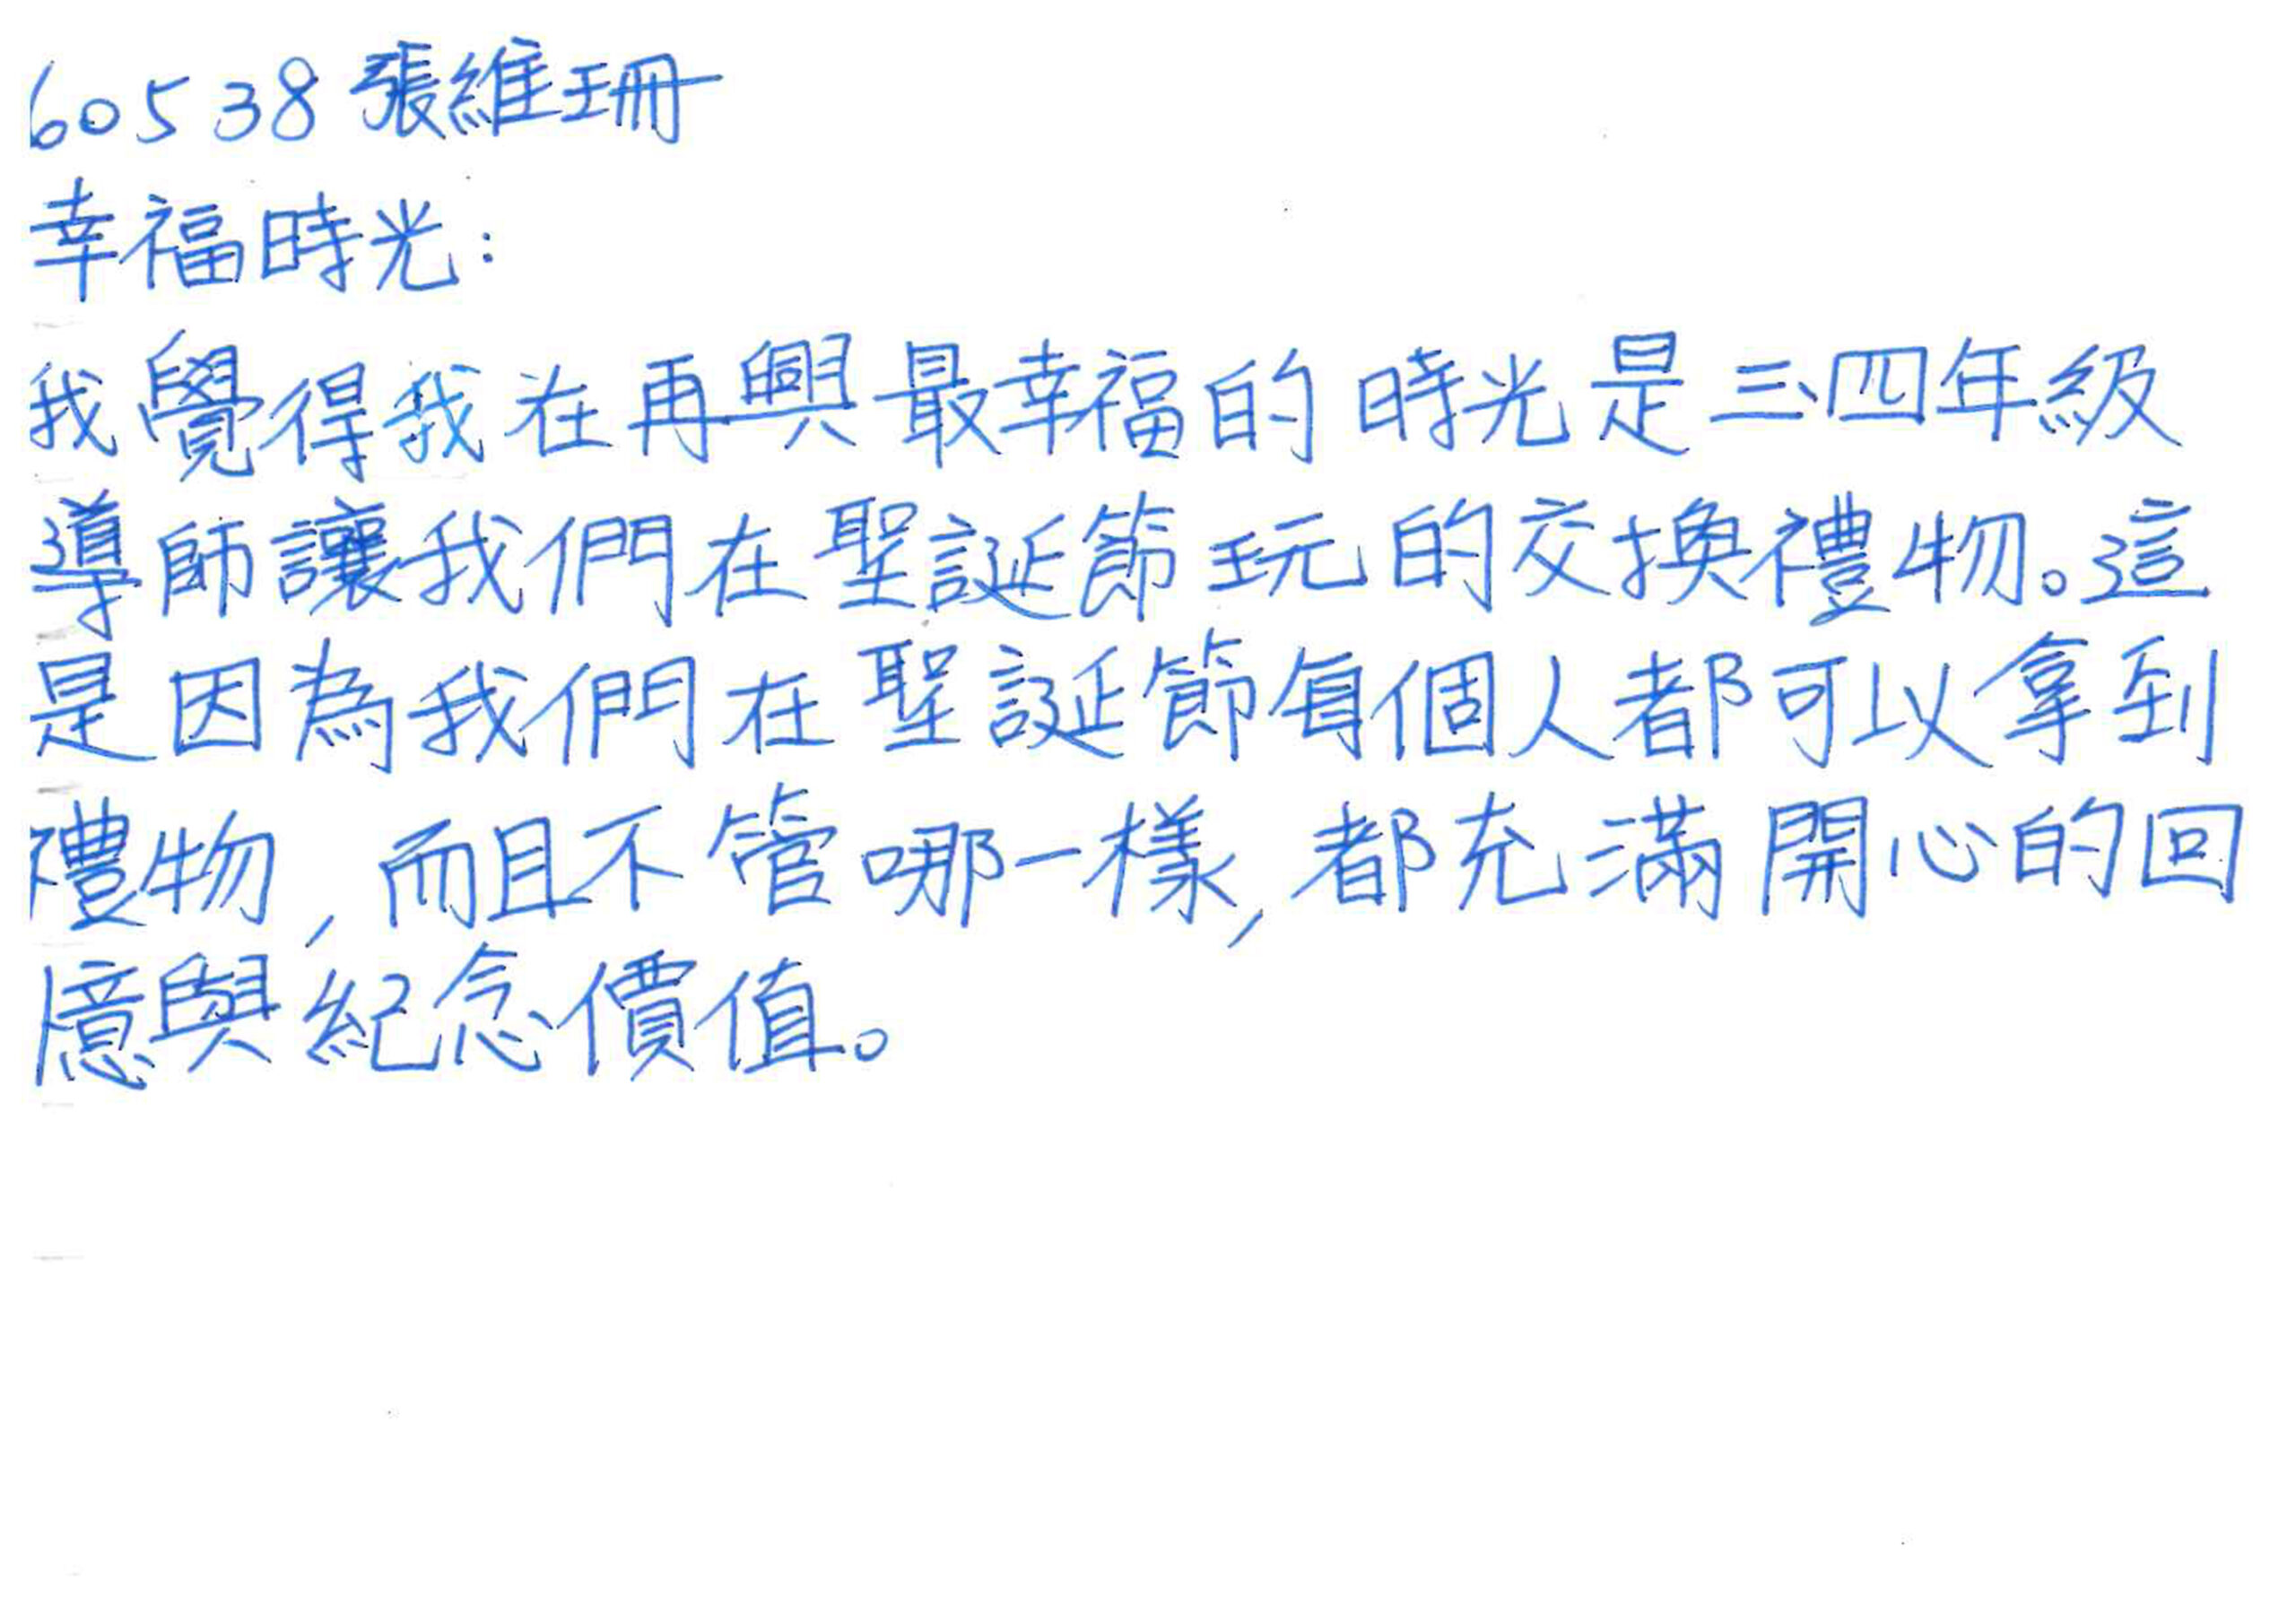 60538 張維珊
幸福時光：
我覺得我在再興最幸福的時光是三、四年級
導師讓我們在聖誕節玩的交換禮物。這
是因為我們在聖誕節每個人都可以拿到
禮物，而且不管哪一樣，都充滿開心的回
憶與紀念價值。